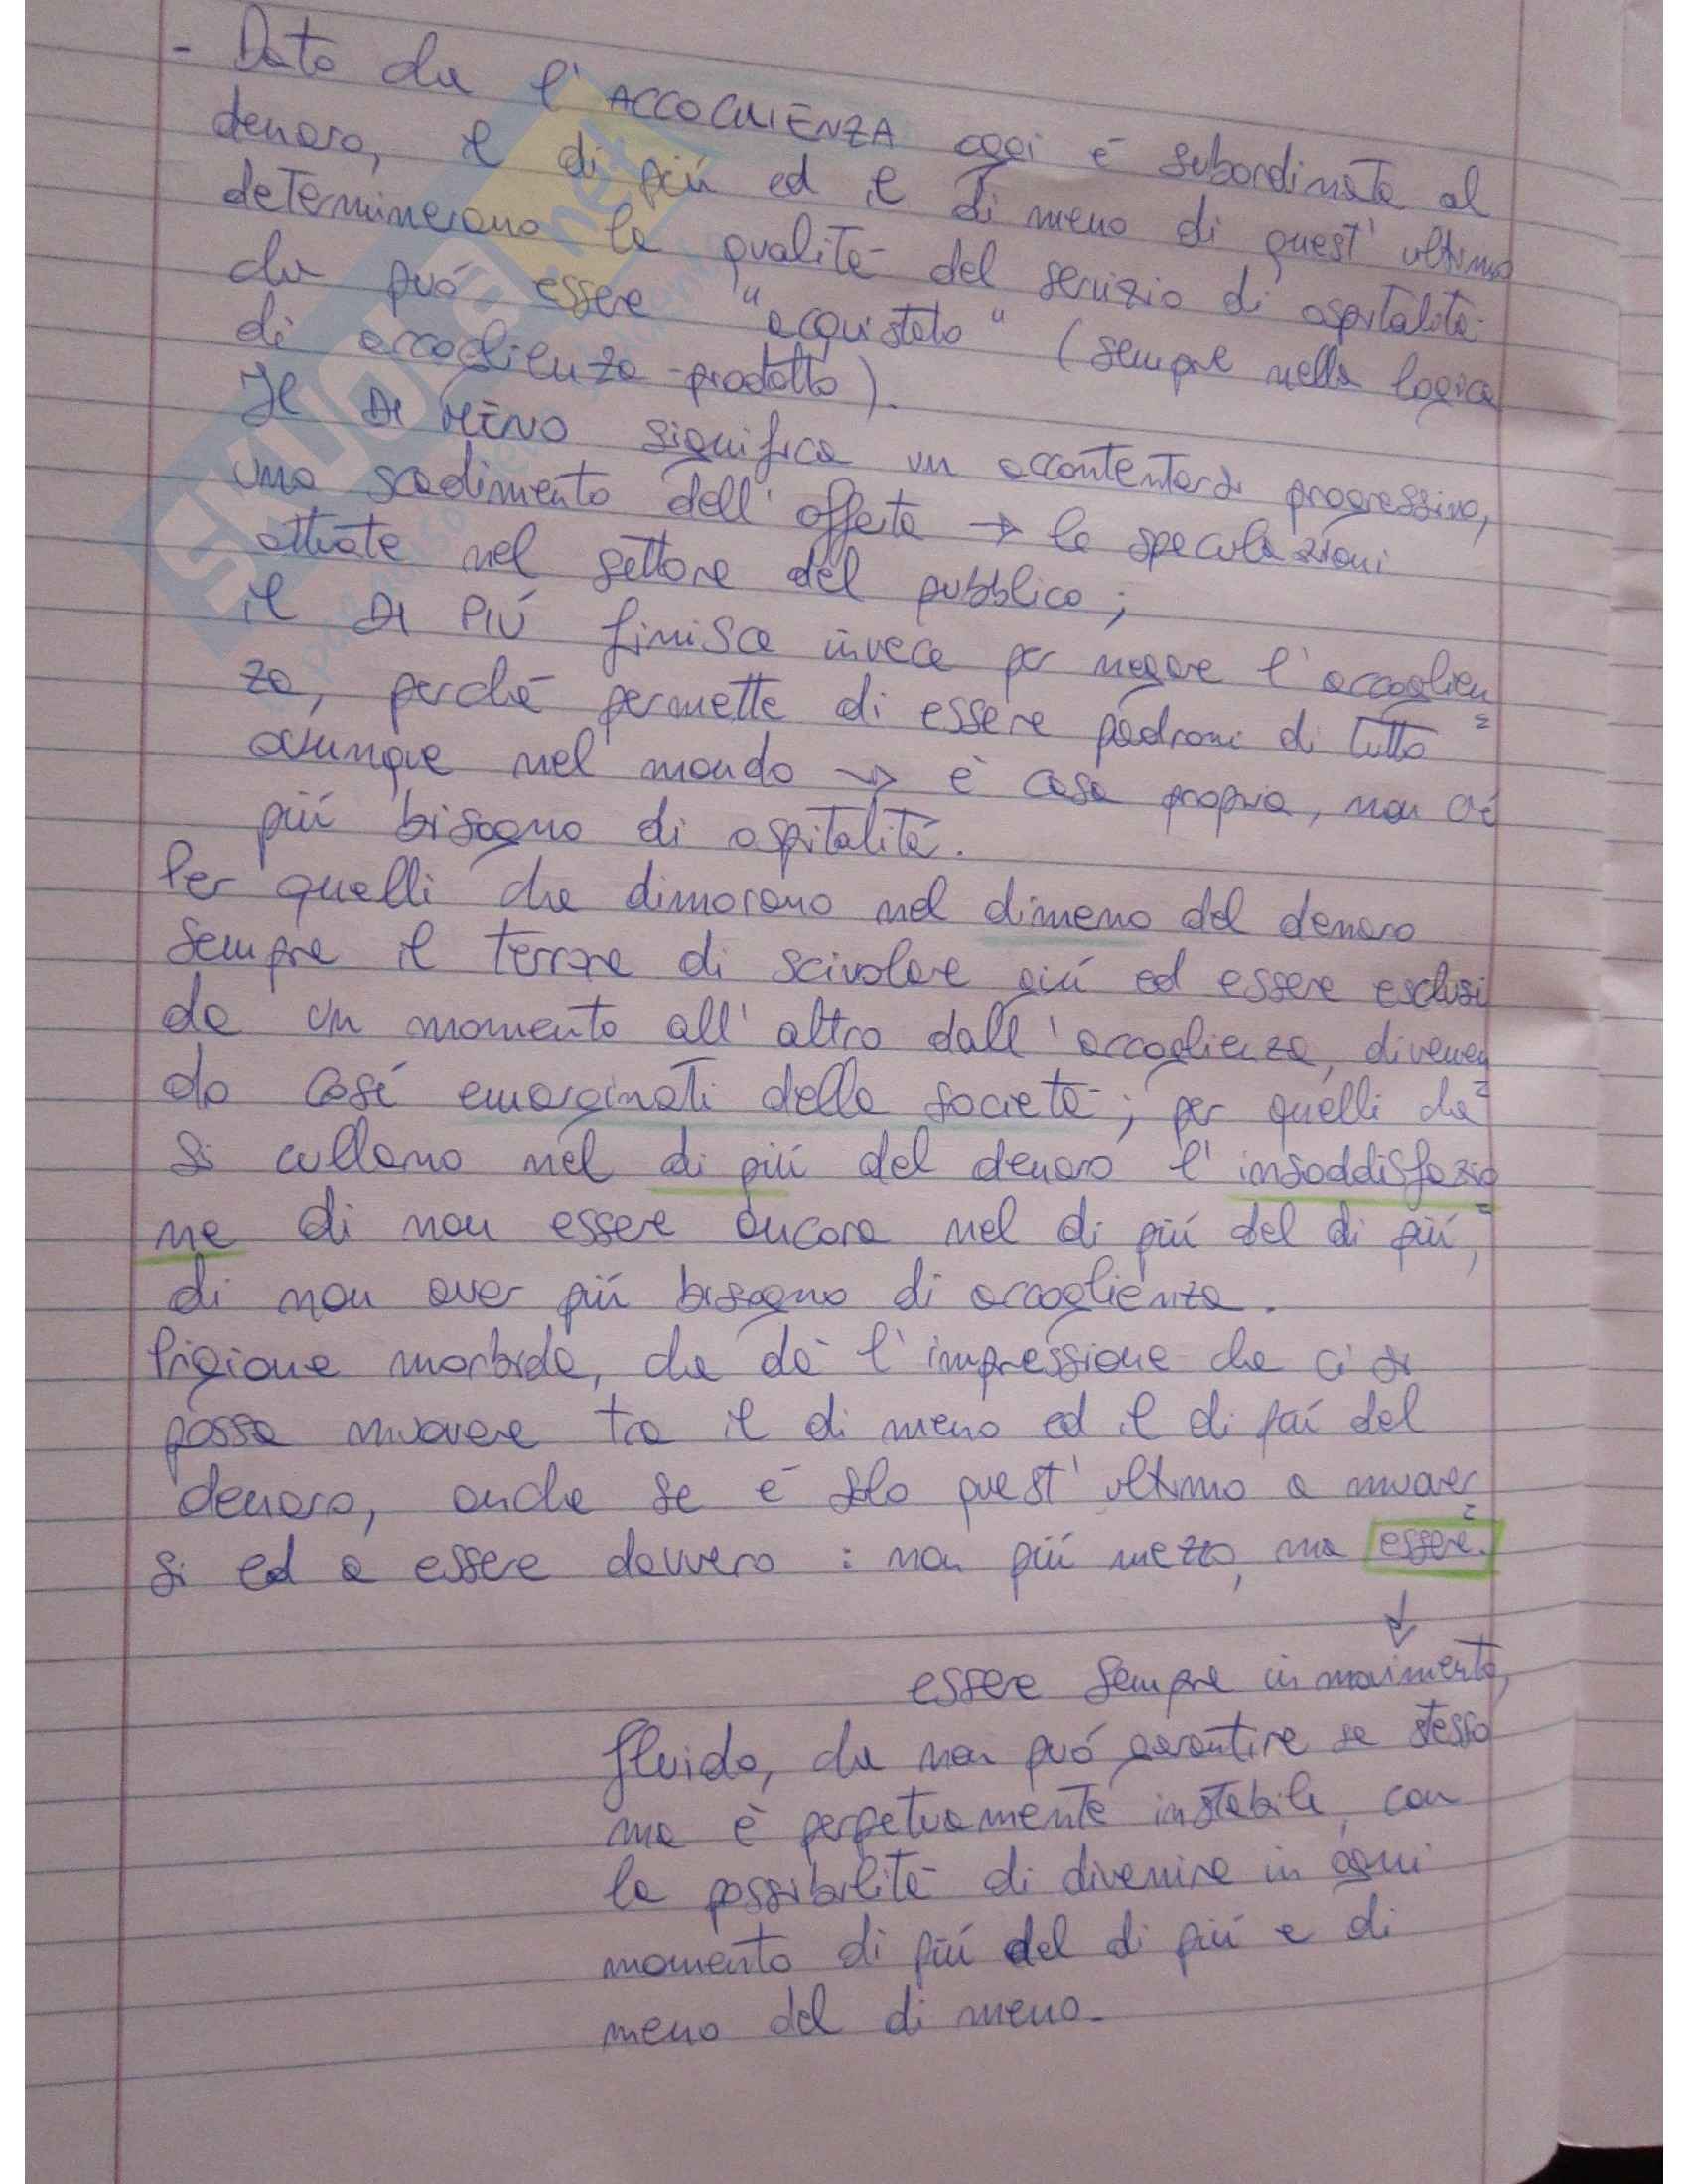 - Dato che l'ACCOGLIENZA oggi è subordinata al
denaro, il di più ed il di meno di quest'ultimo
determinerano la qualità del servizio di ospitalità
che può essere "acquistato" (sempre nella logica
di accoglienza-prodotto).
Il DI MENO significa un accontentarsi progressivo,
uno scadimento dell'offerta → le speculazioni
attuate nel settore del pubblico;
il DI PIÚ finisce invece per negare l'accoglien=
za, perché permette di essere padroni di tutto
ovunque nel mondo → è casa propria, non c'è
piú bisogno di ospitalità.
Per quelli che dimorano nel dimeno del denaro
sempre il terrore di scivolare giú ed essere esclusi
da un momento all'altro dall'accoglienza, divenen=
do cosí emarginati della società; per quelli che
si cullano nel di piú del denaro l'insoddisfazio=
ne di non essere ancora nel di piú del di piú,
di non aver piú bisogno di accoglienza.
Prigione morbida, che dà l'impressione che ci si
possa muovere tra il di meno ed il di piú del
denaro, anche se è solo quest'ultimo a muover=
si ed a essere davvero: non piú mezzo, ma essere.
↓
essere sempre in movimento,
fluido, che non può garantire se stesso
ma è perpetuamente instabile, con
la possibilità di divenire in ogni
momento di piú del di piú e di
meno del di meno.
SKUOLA.net